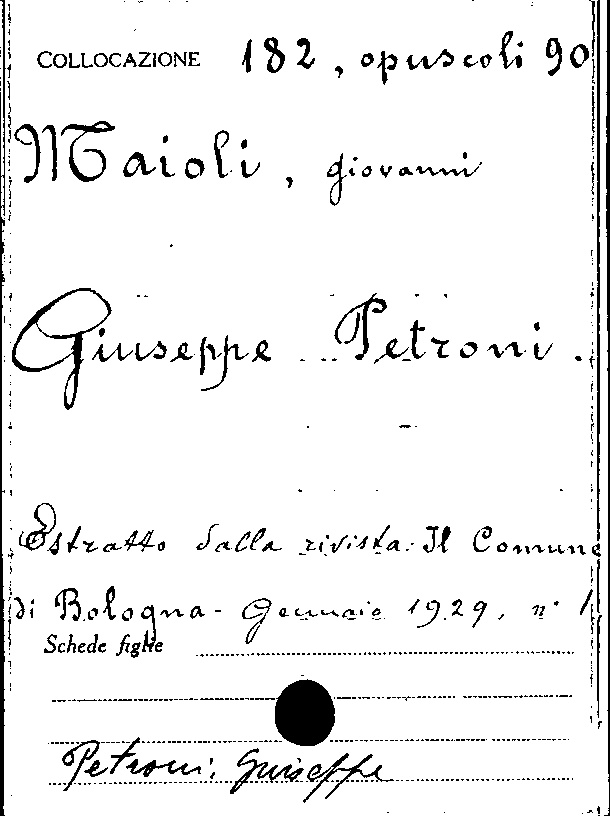 COLLOCAZIONE 182, opuscoli 90
Maioli, Giovanni
Giuseppe Petroni.
Estratto dalla rivista Il Comune
di Bologna - Gennaio 1929, n° 1
Schede figlie
Petroni, Giuseppe